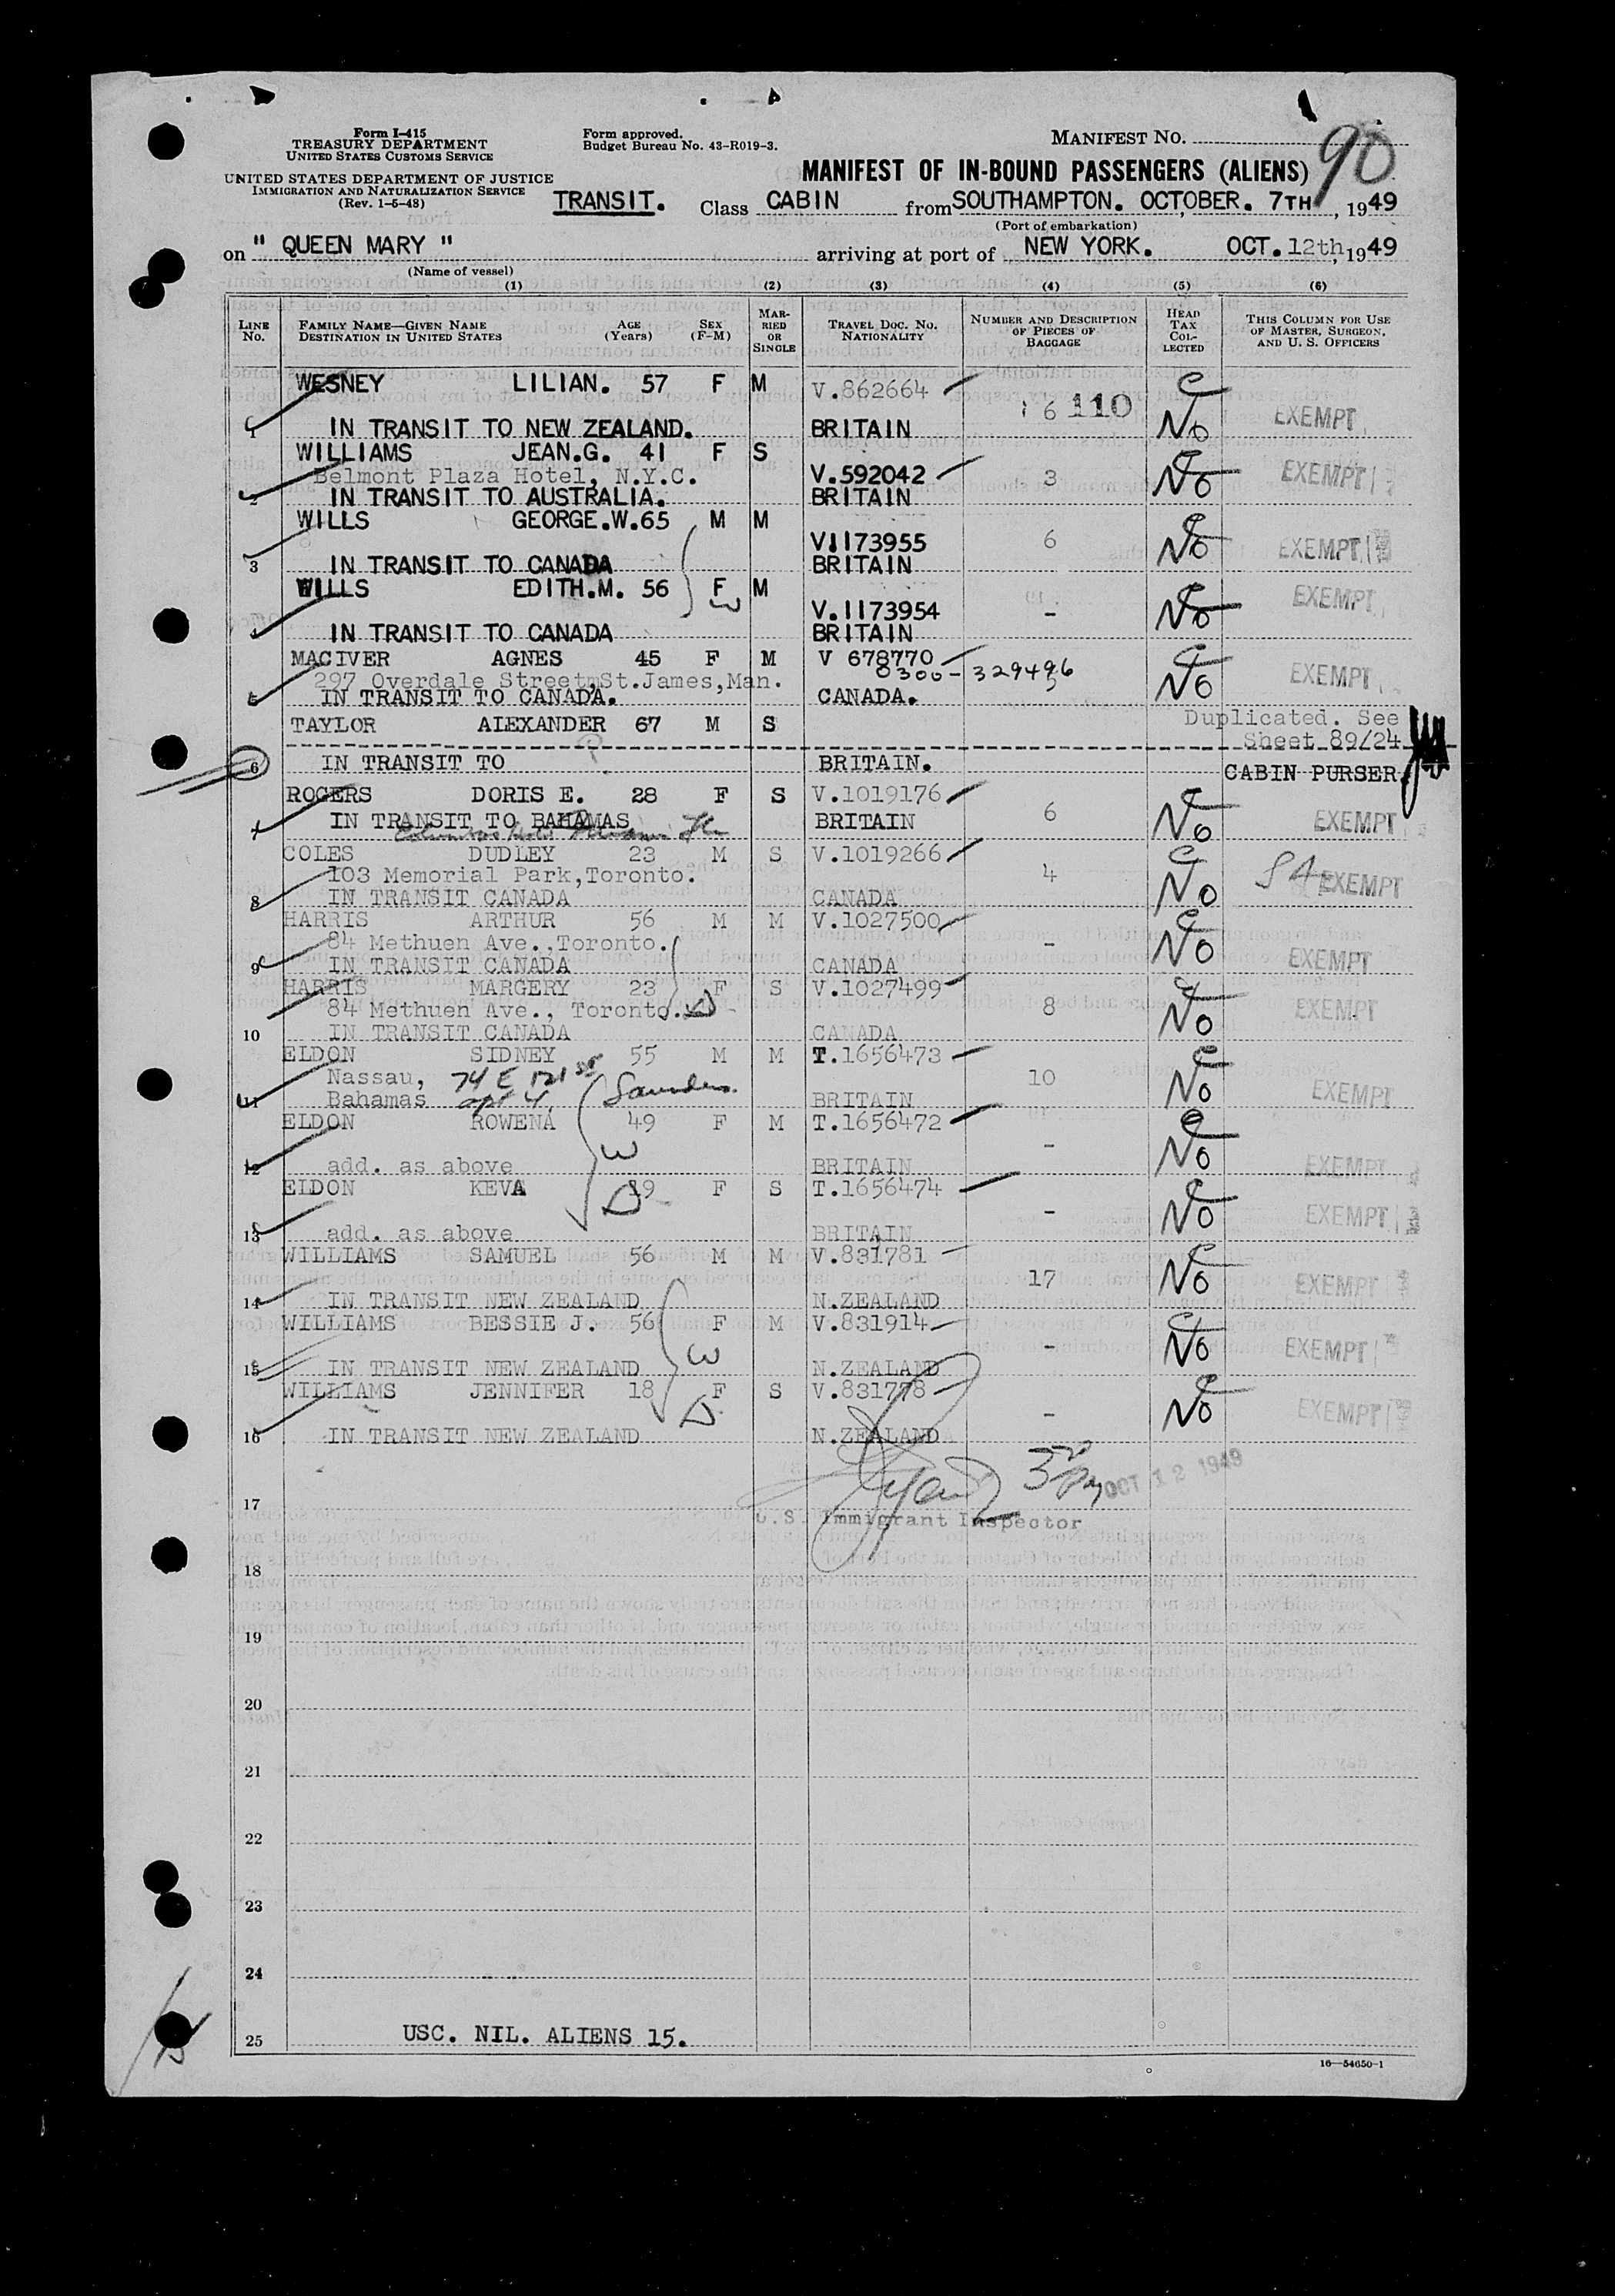 Form I-415
TREASURY DEPARTMENT
UNITED STATES CUSTOMS SERVICE
UNITED STATES DEPARTMENT OF JUSTICE
IMMIGRATION AND NATURALIZATION SERVICE
(Rev. 1-5-48)
Form approved.
Budget Bureau No. 43-R019-3.
MANIFEST NO.
90
MANIFEST OF IN-BOUND PASSENGERS (ALIENS)
TRANSIT. Class CABIN from SOUTHAMPTON. OCTOBER. 7TH, 1949
(Port of embarkation)
on " QUEEN MARY " arriving at port of NEW YORK. OCT. 12th, 1949
(Name of vessel)
(1) (2) (3) (4) (5) (6)
LINE No. FAMILY NAME—GIVEN NAME DESTINATION IN UNITED STATES AGE (Years) SEX (F-M) MARRIED OR SINGLE TRAVEL DOC. NO. NATIONALITY NUMBER AND DESCRIPTION OF PIECES OF BAGGAGE HEAD TAX COLLECTED THIS COLUMN FOR USE OF MASTER, SURGEON, AND U. S. OFFICERS
WESNEY LILIAN. 57 F M V.862664 6 110
1 IN TRANSIT TO NEW ZEALAND. BRITAIN No EXEMPT
WILLIAMS JEAN.G. 41 F S
Belmont Plaza Hotel, N.Y.C. V.592042 3 No EXEMPT
2 IN TRANSIT TO AUSTRALIA. BRITAIN
WILLS GEORGE.W.65 M M
V1173955 6 No EXEMPT
3 IN TRANSIT TO CANADA BRITAIN
WILLS EDITH.M. 56 F M
W
V.1173954 - No EXEMPT
4 IN TRANSIT TO CANADA BRITAIN
MACIVER AGNES 45 F M V 678770
0300-329496
297 Overdale Street, St.James,Man. No EXEMPT
5 IN TRANSIT TO CANADA. CANADA.
TAYLOR ALEXANDER 67 M S Duplicated. See
Sheet 89/24
6 IN TRANSIT TO BRITAIN. CABIN PURSER.
ROGERS DORIS E. 28 F S V.1019176 6
7 IN TRANSIT TO BAHAMAS BRITAIN No EXEMPT
COLES DUDLEY 23 M S V.1019266
103 Memorial Park,Toronto. 4 No EXEMPT
8 IN TRANSIT CANADA CANADA
HARRIS ARTHUR 56 M M V.1027500
84 Methuen Ave.,Toronto. - No EXEMPT
9 IN TRANSIT CANADA CANADA
HARRIS MARGERY 23 F S V.1027499
84 Methuen Ave., Toronto. D 8 No EXEMPT
10 IN TRANSIT CANADA CANADA
ELDON SIDNEY 55 M M T.1656473
Nassau, 74 E 121 st Saunders 10 No EXEMPT
11 Bahamas apt 4 BRITAIN
ELDON ROWENA 49 F M T.1656472
W - No EXEMPT
12 add. as above BRITAIN
ELDON KEVA 19 F S T.1656474
D - No EXEMPT
13 add. as above BRITAIN
WILLIAMS SAMUEL 56 M M V.831781
17 No EXEMPT
14 IN TRANSIT NEW ZEALAND N.ZEALAND
WILLIAMS BESSIE J. 56 F M V.831914
W - No EXEMPT
15 IN TRANSIT NEW ZEALAND N.ZEALAND
WILLIAMS JENNIFER 18 F S V.831778
D - No EXEMPT
16 IN TRANSIT NEW ZEALAND N.ZEALAND
OCT 12 1949
17
U.S. Immigrant Inspector
18
19
20
21
22
23
24
25 USC. NIL. ALIENS 15.
16—54650-1